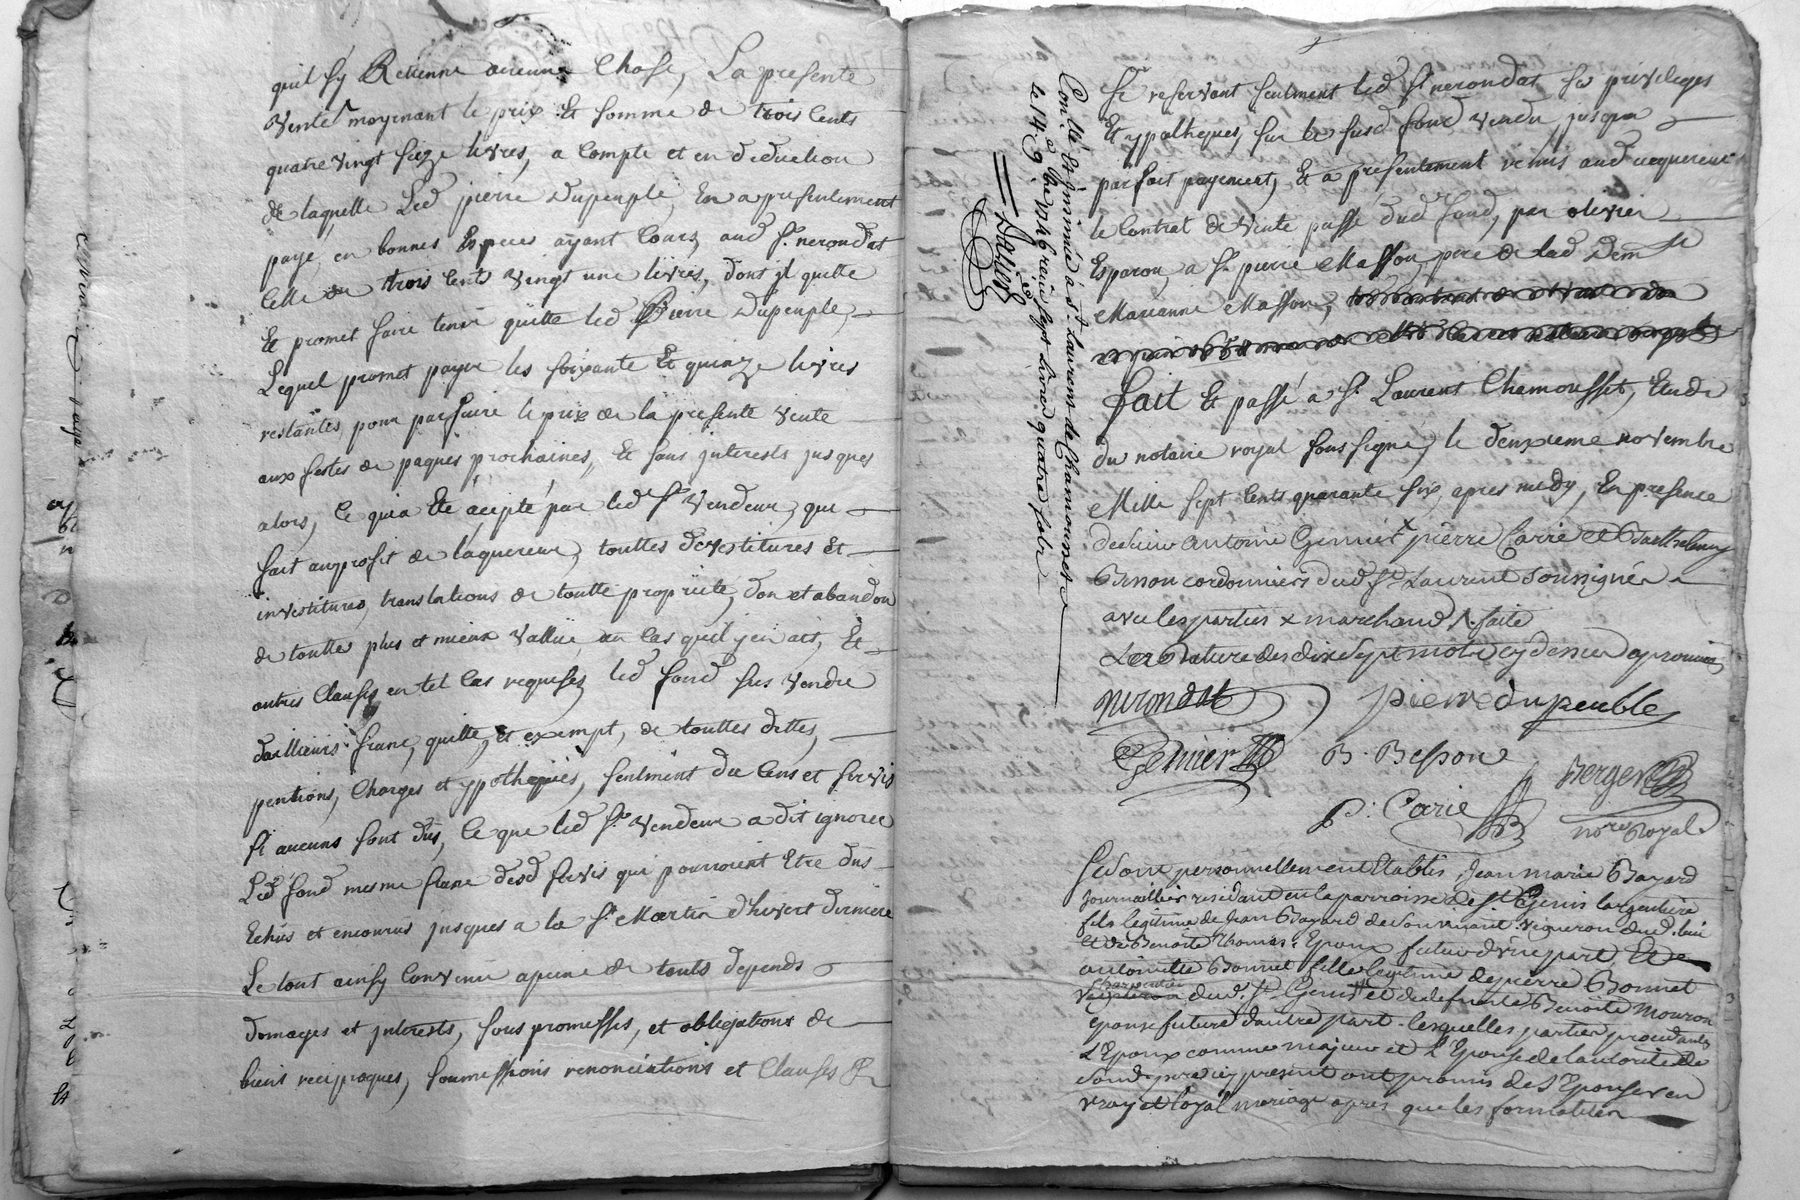 quil sy Retienne aucune Chose, La presente
Vente moyenant le prix Et somme de trois Cents
quatre vingt seize livres, a Compte et en deduction
de laquelle Led pierre Dupeuple En a presentement
payé, en bonnes Especes ayant Cours, aud Sr. nerondat
Celle de trois Cents vingt une livres, dont jl quitte
Et promet faire tenir quitte led Pierre Dupeuple,
Lequel promet payer les soixante Et quinze livres
restantes, pour parfaire le prix de la presente vente
aux festes de paques prochaines, Et sans jnterests jusques
alors, Ce qui a Eté acepté par led Sr. Vendeur, qui
fait au profit de laquereur, touttes devestitures Et
investitures, translations de toutte proprieté, don et abandon
de toutte plus et mieux Vallüe, au Cas quil y en ait, Et
autres Clauses en tel Cas requises, led fond sus vendu
dailleurs franc, quitte, et exempt, de touttes dettes,
pentions, Charges et ypotheques, seulment du Cens et servis
si aucuns sont dûs, Ce que led Sr. Vendeur a dit ignorer
Led fond mesme franc desd servis qui pourroient Etre dus
Echûs et encourus jusques a la St. Martin d'hivert derniere
Le tout ainsy Convenu a peine de touts depends
domages et jnterests, sous promesses, et obligations de
biens reciproques, soumessions renonciations et Clauses
Controllé et insinué à St. Laurens de Chamousset
Le 14 9bre 1746 sept livres quatre sols
Se reservant seulment led Sr. nerondat ses privileges
Et ypotheques, sur le susd fond vendu jusqua
parfait payement, Et a presentement remis aud acquereur
le Contrat de Vente passé dud fond, par olivier
Esparon, a Sr. pierre Masson, pere de lad Demlle
Marianne Masson,
fait Et passé a St. Laurent Chamousset, Etude
du notaire royal soussigné, le deuxieme novembre
Mille sept Cents quarante six, apres midy, En presence
de sieur antoine Genier x pierre Carrie et Barthelemy
Besson cordonniers dud St. Laurent soussignés
avec les parties x marchand /. faite
La rature des dix sept mots cy dessus aprouvée
nerondat pierre dupeuble
Genier B. Besson
Berger
P. Carie
nore Royal
Se sont personnellement Etablis, Jean marie Bayard
Journaillier residant en la parroisse de St. Genis largentiere
fils legitime de Jean Bayard de son vivant vigneron dud. lieu
et de Benoite Thomas, Epoux futur d'une part, Et
antoinette Bonnet fille legitime de pierre Bonnet
charpentier
dud. St. Genis et de defunte Benoite Mouron
Epouse future d'autre part. lesquelles parties procedantes
L'Epoux comme majeur et l'Epouse de lautorité de
sond. pere cy present ont promis de s'Epouser en
vray et loyal mariage apres que les formalités